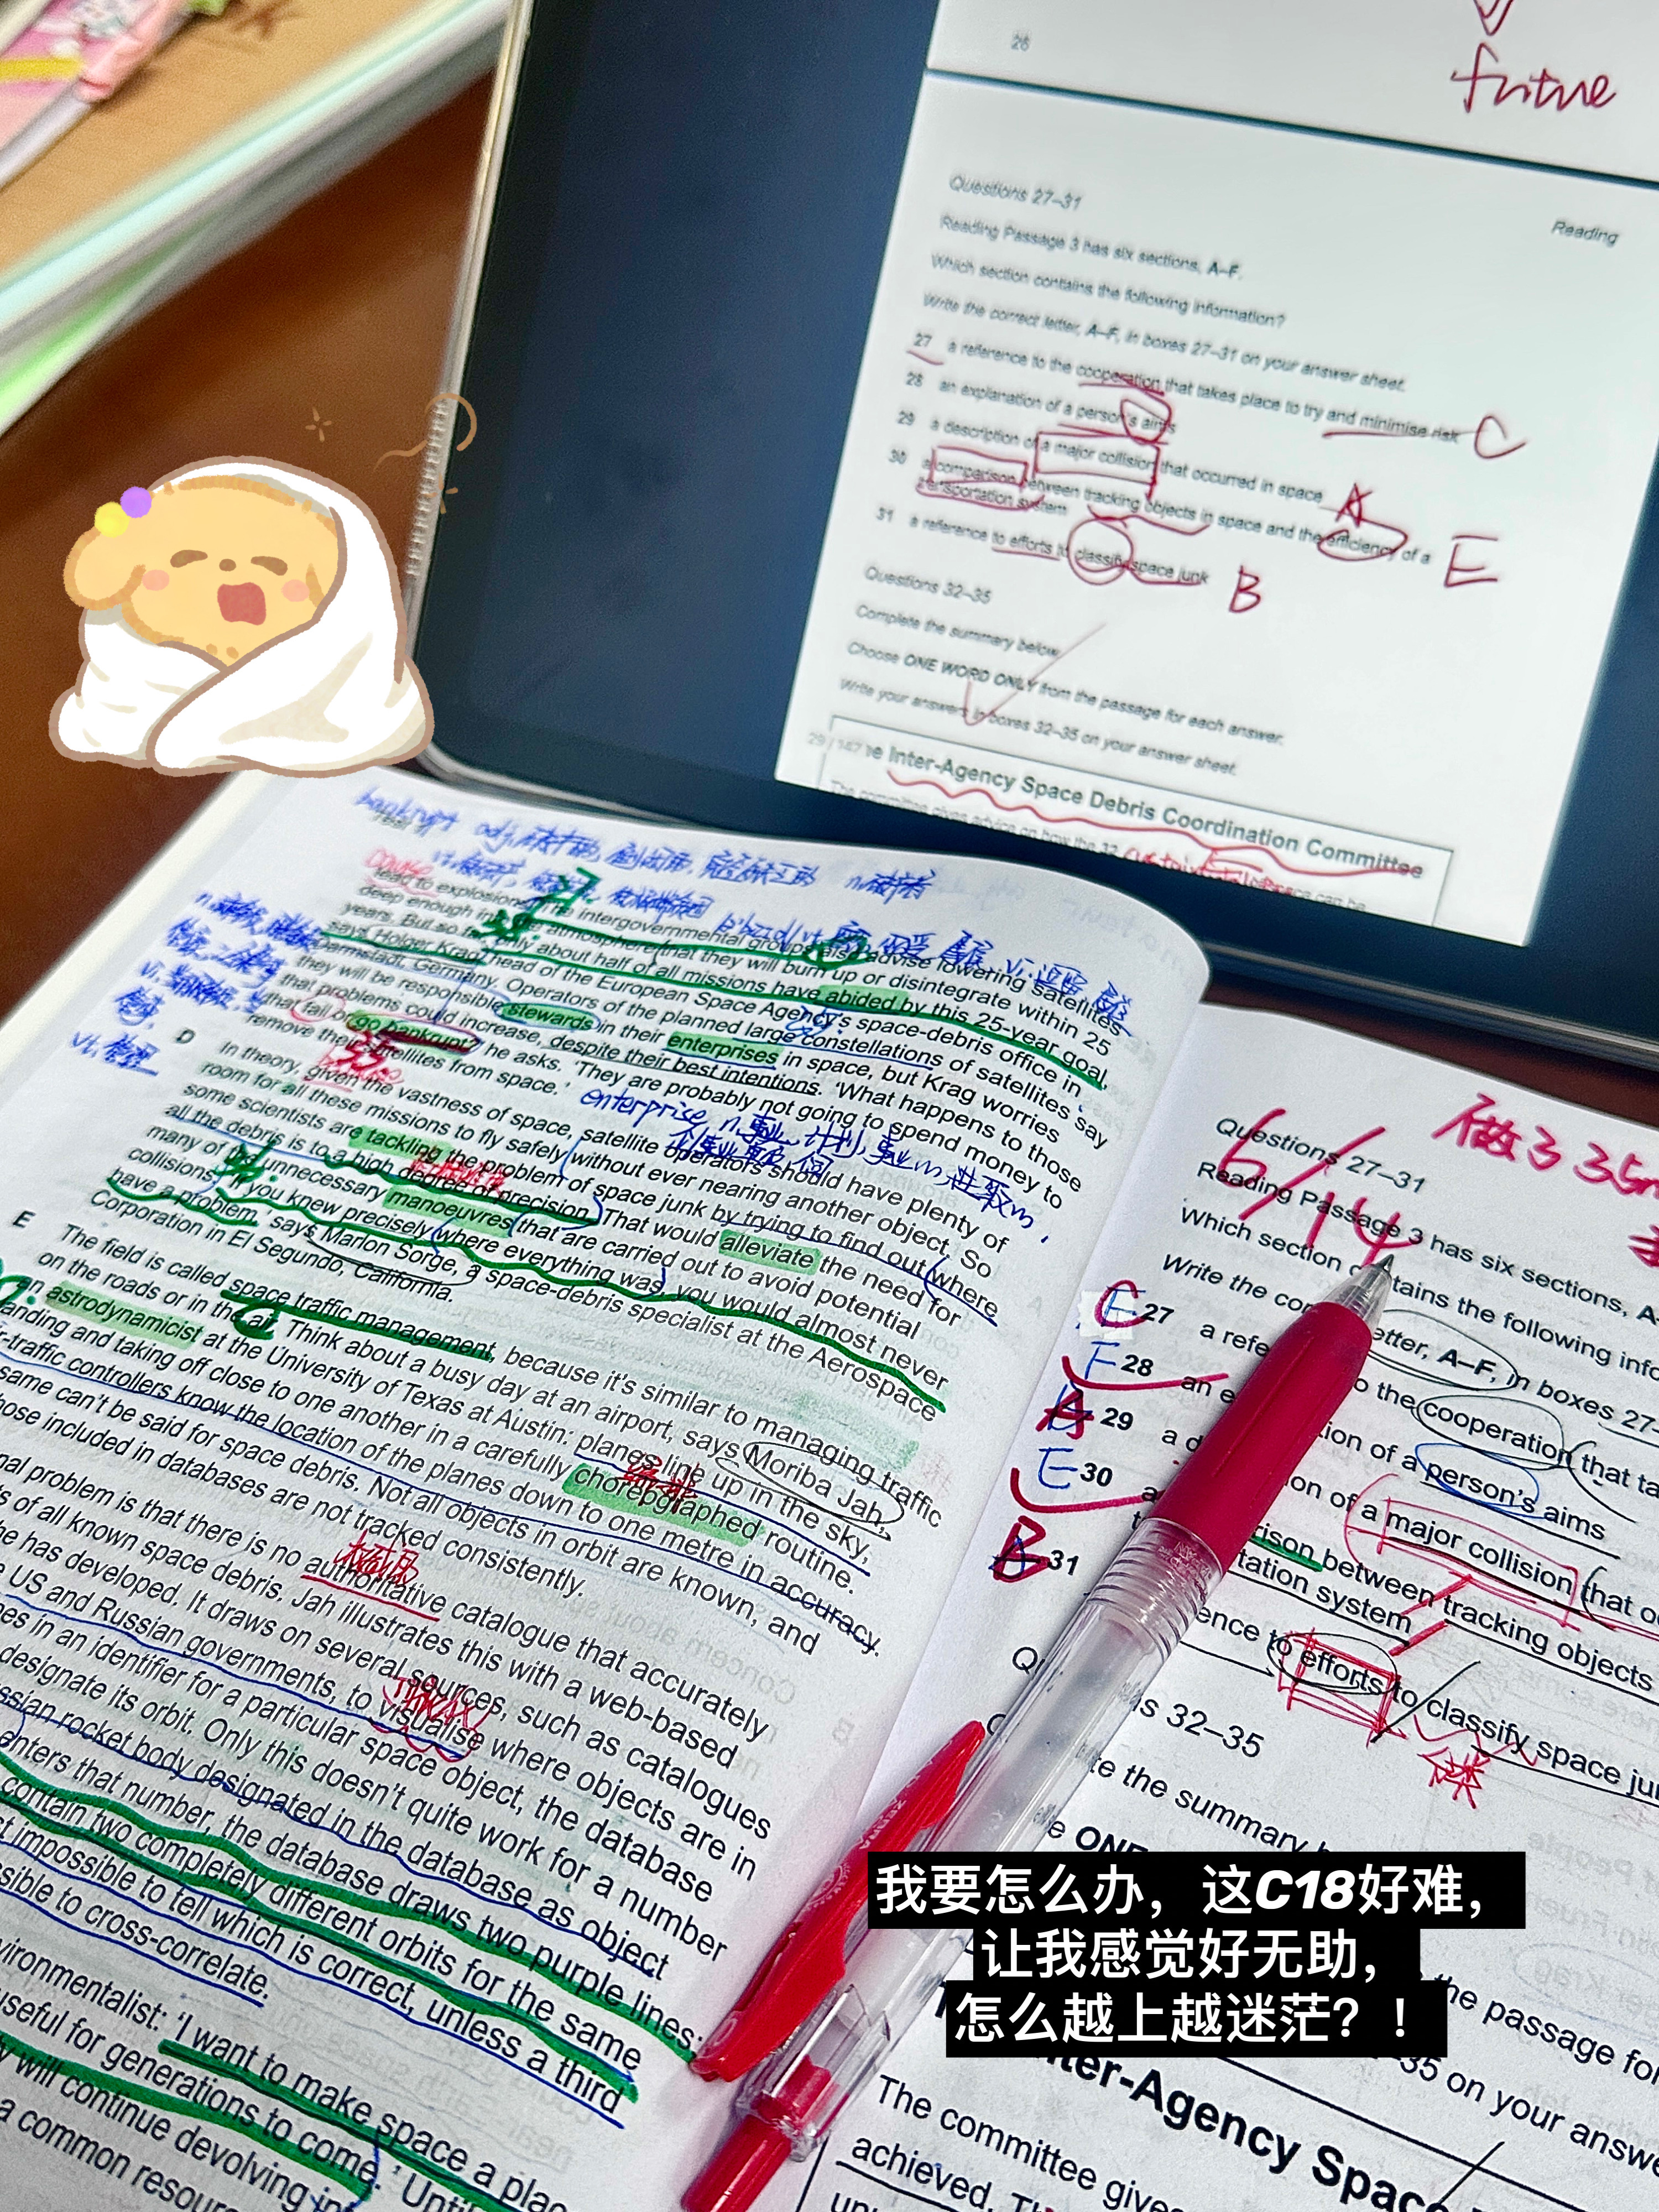 26
future
Reading
Questions 27–31
Reading Passage 3 has six sections, A–F.
Which section contains the following information?
Write the correct letter, A–F, in boxes 27–31 on your answer sheet.
27 a reference to the cooperation that takes place to try and minimise risk C
28 an explanation of a person's aims
29 a description of a major collision that occurred in space A
30 a comparison between tracking objects in space and the efficiency of a
transportation system E
31 a reference to efforts to classify space junk B
Questions 32–35
Complete the summary below.
Choose ONE WORD ONLY from the passage for each answer.
Write your answers in boxes 32–35 on your answer sheet.
The Inter-Agency Space Debris Coordination Committee
The committee gives advice on how the 32
bankrupt adj.
lead to explosions. The intergovernmental groups also advise lowering satellites
deep enough into the atmosphere that they will burn up or disintegrate within 25
years. But so far only about half of all missions have abided by this 25-year goal,
says Holger Krag, head of the European Space Agency's space-debris office in
Darmstadt, Germany. Operators of the planned large constellations of satellites say
they will be responsible stewards in their enterprises in space, but Krag worries
that problems could increase, despite their best intentions. 'What happens to those
that fail or go bankrupt?' he asks. 'They are probably not going to spend money to
remove their satellites from space.'
enterprise n.事业
D In theory, given the vastness of space, satellite operators should have plenty of
room for all these missions to fly safely without ever nearing another object. So
some scientists are tackling the problem of space junk by trying to find out where
all the debris is to a high degree of precision. That would alleviate the need for
many of the unnecessary manoeuvres that are carried out to avoid potential
collisions. 'If you knew precisely where everything was, you would almost never
have a problem,' says Marlon Sorge, a space-debris specialist at the Aerospace
Corporation in El Segundo, California.
E The field is called space traffic management, because it's similar to managing traffic
on the roads or in the air. Think about a busy day at an airport, says Moriba Jah,
an astrodynamicist at the University of Texas at Austin: planes line up in the sky,
anding and taking off close to one another in a carefully choreographed routine.
r-traffic controllers know the location of the planes down to one metre in accuracy.
same can't be said for space debris. Not all objects in orbit are known, and
hose included in databases are not tracked consistently.
nal problem is that there is no authoritative catalogue that accurately
s of all known space debris. Jah illustrates this with a web-based
he has developed. It draws on several sources, such as catalogues
e US and Russian governments, to visualise where objects are in
es in an identifier for a particular space object, the database
designate its orbit. Only this doesn't quite work for a number
ssian rocket body designated in the database as object
enters that number, the database draws two purple lines:
contain two completely different orbits for the same
st impossible to tell which is correct, unless a third
sible to cross-correlate.
vironmentalist: 'I want to make space a plac
useful for generations to come.' Until
y will continue devolving in
a common resour
做了35m
6/14
Questions 27–31
Reading Passage 3 has six sections, A–
Which section contains the following info
Write the cor etter, A–F, in boxes 27–
C 27 a refe o the cooperation that ta
F 28 an e tion of a person's aims
A 29 a d ion of a major collision that o
E 30 a rison between tracking objects
tation system
B 31 ence to efforts to classify space ju
ns 32–35
te the summary
ONE
the passage for
35 on your answe
ter-Agency Space
The committee give
achieved.
我要怎么办，这C18好难，
让我感觉好无助，
怎么越上越迷茫？！